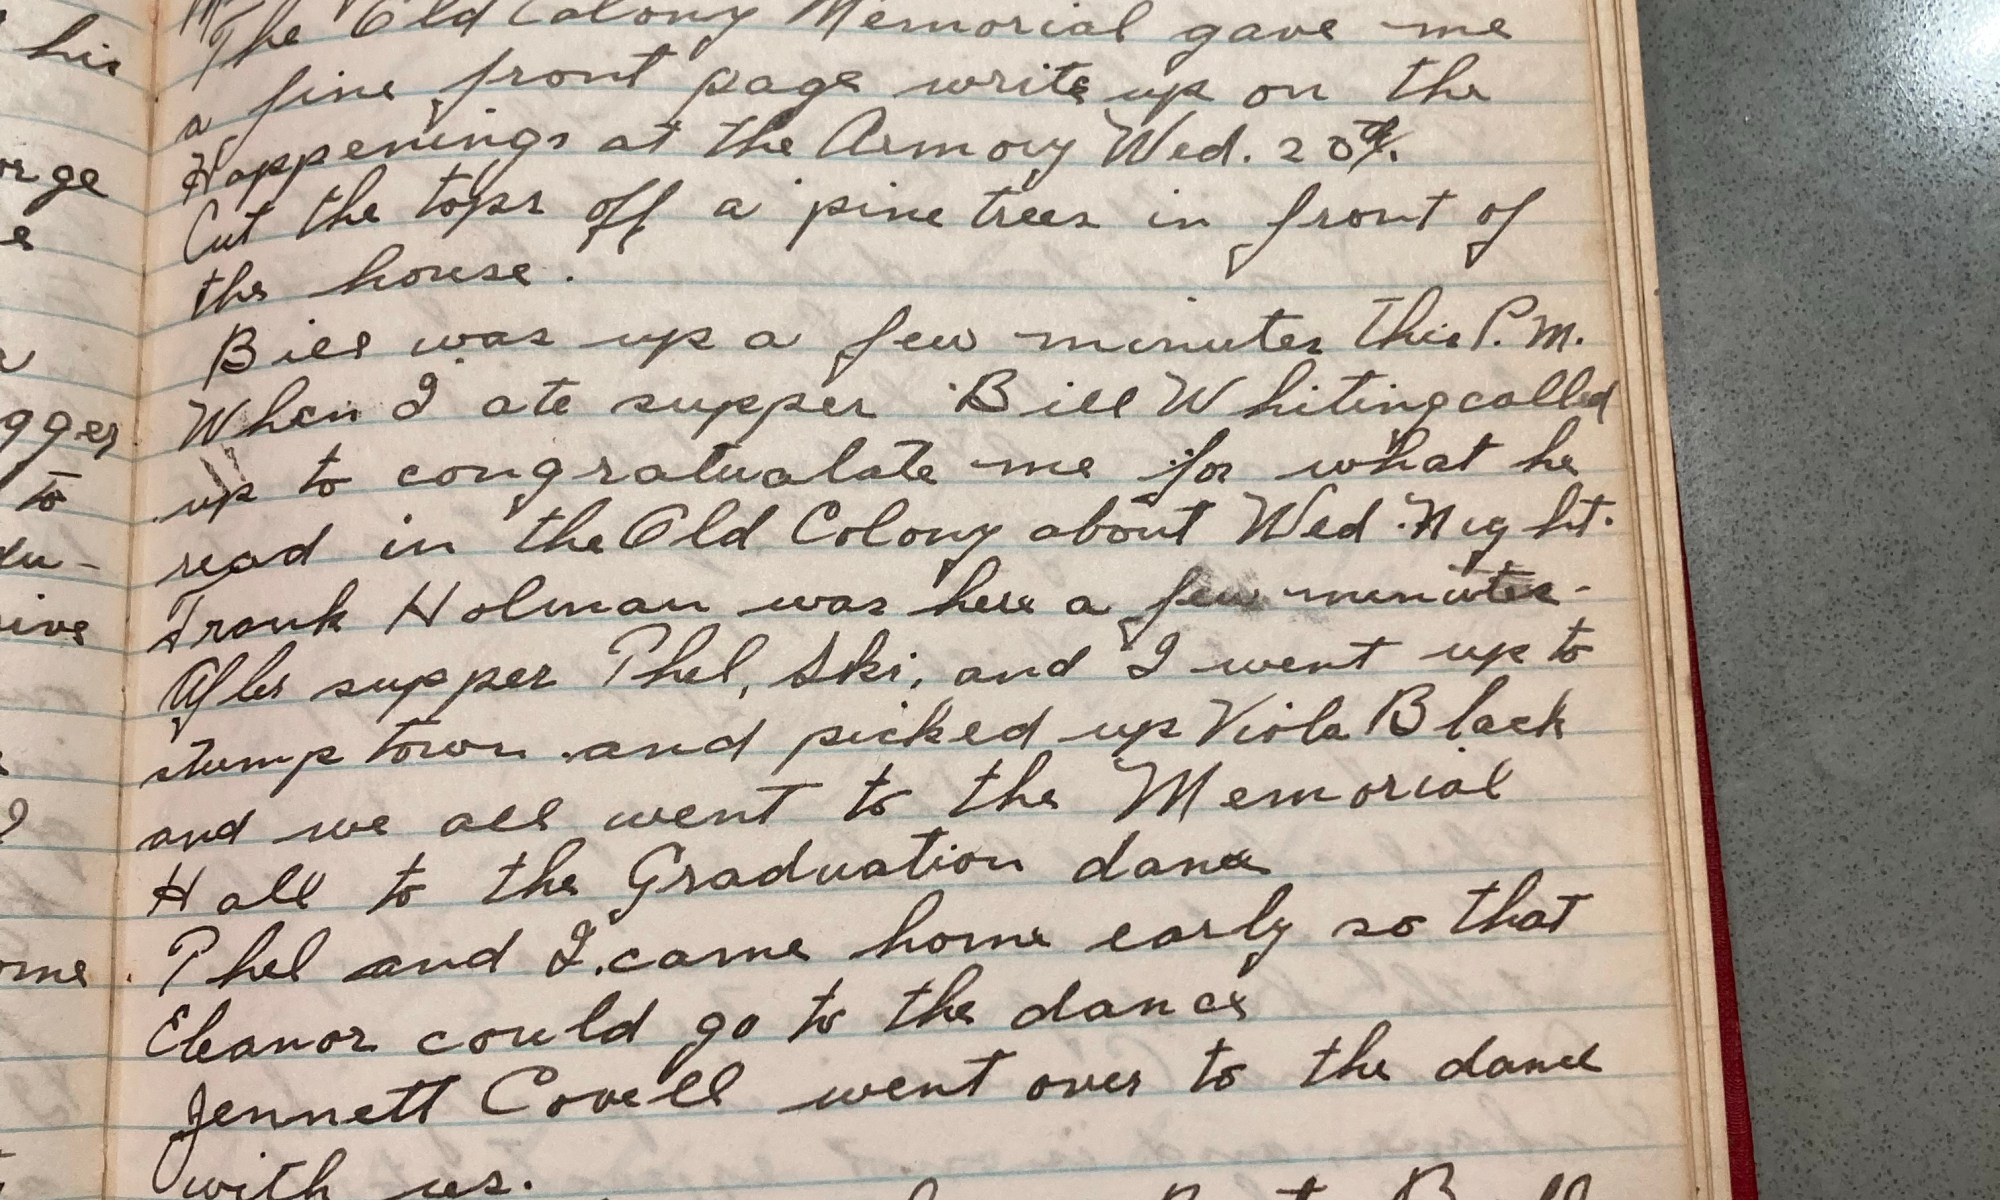 his
orge
e
gger
to
du-
ive
ome
The Old Colony Memorial gave me
a fine front page write up on the
Happenings at the Armory Wed. 20th.
Cut the tops off a pine trees in front of
the house.
Bill was up a few minutes this P.M.
When I ate supper Bill Whiting called
up to congratualate me for what he
read in the Old Colony about Wed. Night.
Frank Holman was here a few minutes-
After supper Phel, Ski, and I went up to
stump town and picked up Viola Black
and we all went to the Memorial
Hall to the Graduation dance
Phel and I came home early so that
Eleanor could go to the dance
Jennett Covell went over to the dance
with us.